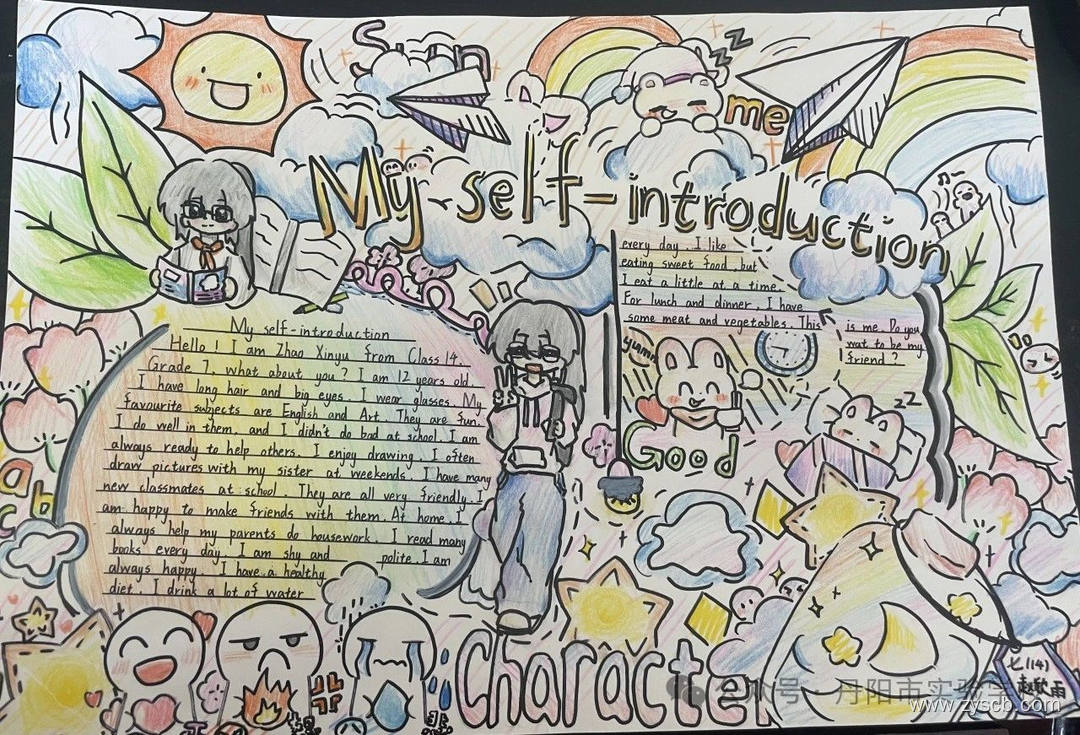 Sun
me
My self-introduction
My self-introduction
Hello! I am Zhao Xinyu from Class 14,
Grade 7, what about you? I am 12 years old.
I have long hair and big eyes. I wear glasses. My
favourite subjects are English and Art. They are fun.
I do well in them, and I didn't do bad at school. I am
always ready to help others. I enjoy drawing. I often
draw pictures with my sister at weekends. I have many
new classmates at school. They are all very friendly. I
am happy to make friends with them. At home, I
always help my parents do housework. I read many
books every day. I am shy and polite. I am
always happy. I have a healthy
diet. I drink a lot of water
every day. I like
eating sweet food, but
I eat a little at a time.
For lunch and dinner, I have
some meat and vegetables. This
is me. Do you
wat to be my
friend?
zZZ
yummy
Good
zZ
a b
c
Character
七(14)
赵歆雨
公众号 · 丹阳市实验学
www.zyscb.com